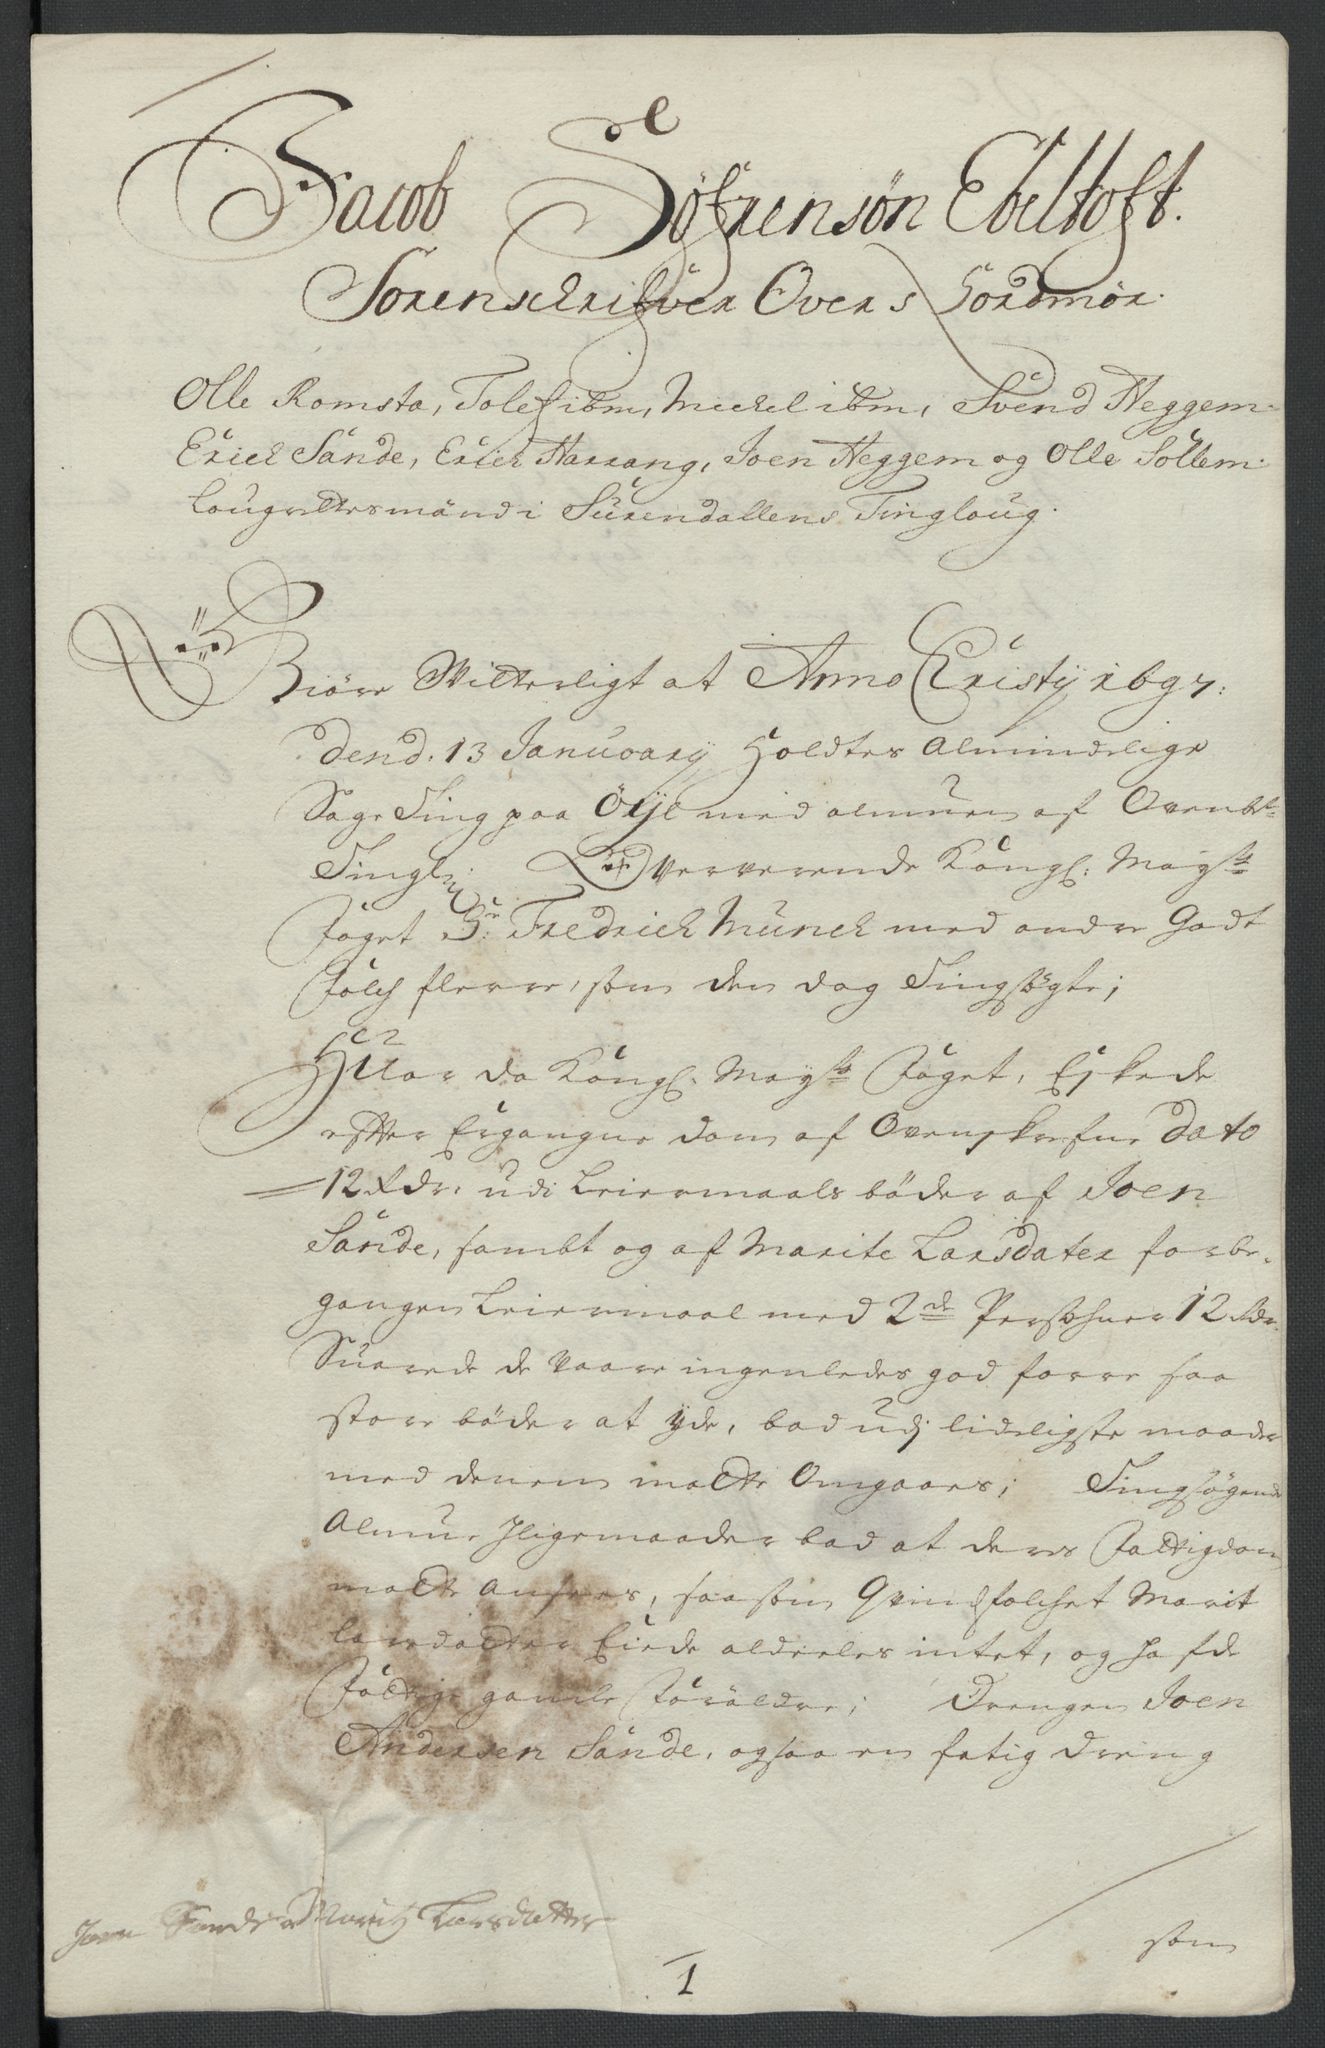 Jacob Søfrensøn Ebeltoft.
Sorenschrifver Over Nordmør.
Olle Romsta, Tolef ibm, Michel ibm, Svend Heggem
Erich Sande, Erich Harrang, Joen Heggem og Olle Sollem
Laugrettesmænd i Surendallens Tinglaug.
Giøre Witterligt at Anno Christy 1697:
dend. 13 January Holdtes Almindelige
Sage Ting paa Øÿe med almuen af Ovenbte
Tingl: Oververende Kongl: Mayts
Foget Sr: Fredrich Munch med andre Godt
Folch flerre, som den dag Tingsøgte;
Huor da Kongl: Mayts Foget, Eskede
efter Ergangne dom af Ovenskrefne Dato
12 Rdr. udi Leiermaals bøder af Joen
Sande, sambt og af Marite Larsdater forbe-
gangen Leiermaal med 2de Persohner 12 Rdr.
Suarede de vaare ingenledes god forre saa
store bøder at ÿde, bad udj lideligste maader
med denem motte Omgaaes; Tingsøgende
Almue Jligemaader bad at deres Fattigdom
motte ansees, saasom Qvindfolchet Marit
larsdatter Eiede aldeeles intet, og hafde
Fattige gamle Forældre; Drengen Joen
Andersen Sande, ogsaa en fatig Dreng
som
Joen Sande Marit Larsdatter
1